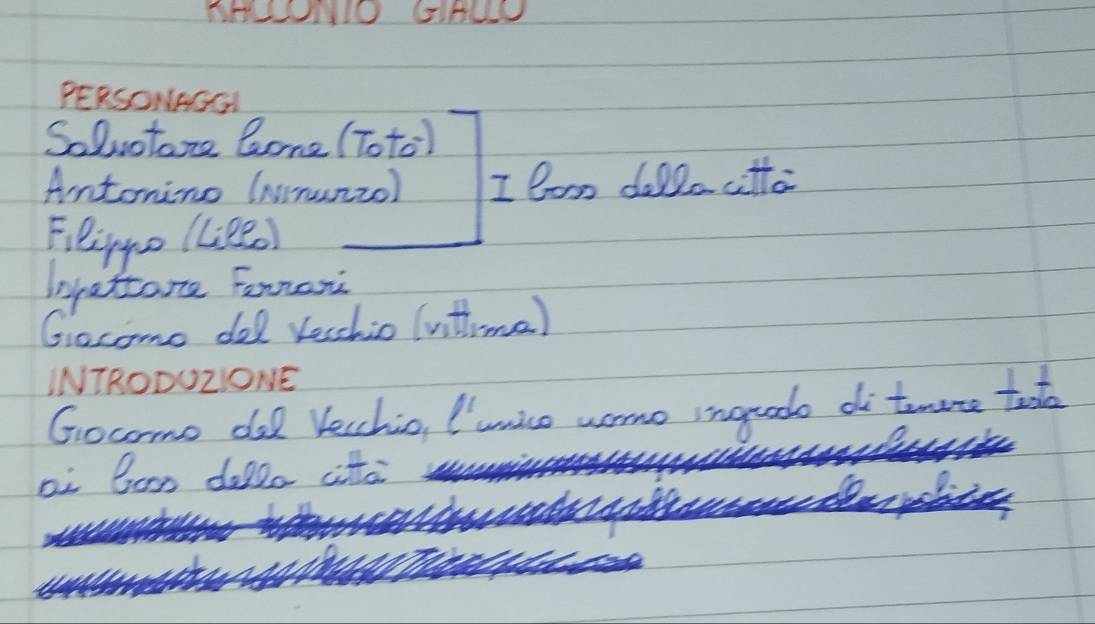 RACCONTO GIALLO
PERSONAGGI
Salvatore Leone (Totò)
Antonino (Ninuzzo)
Filippo (Lillo)
I boss della città
Ispettore Ferrari
Giacomo del Vecchio (vittima)
INTRODUZIONE
Giacomo del Vecchio, l'unico uomo in grado di tenere testa
ai boss della città